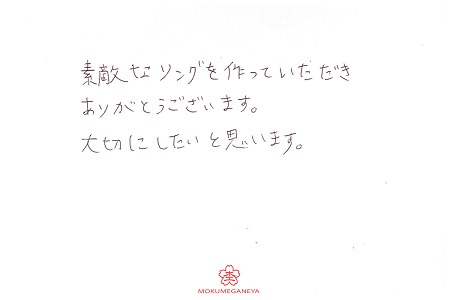 素敵なリングを作っていただき
ありがとうございます。
大切にしたいと思います。
MOKUMEGANEYA